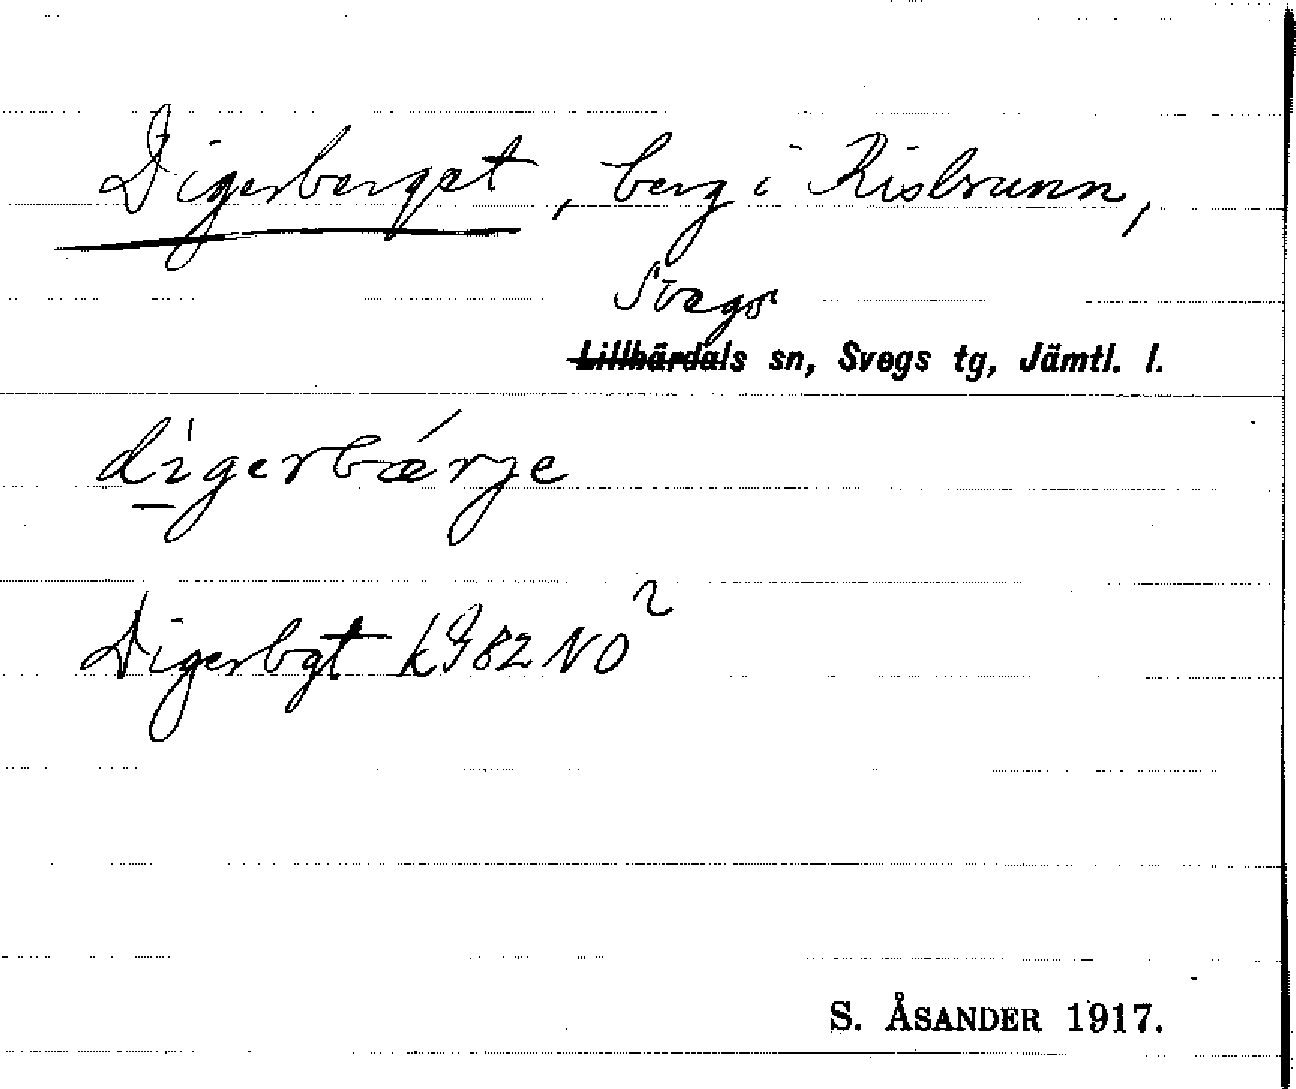 Digerberget, berg i Risbrunn,
Svegs
Lillhärdals sn, Svegs tg, Jämtl. l.
dìgerbǽrje
Digerbgt kJ82NO²
S. ÅSANDER 1917.